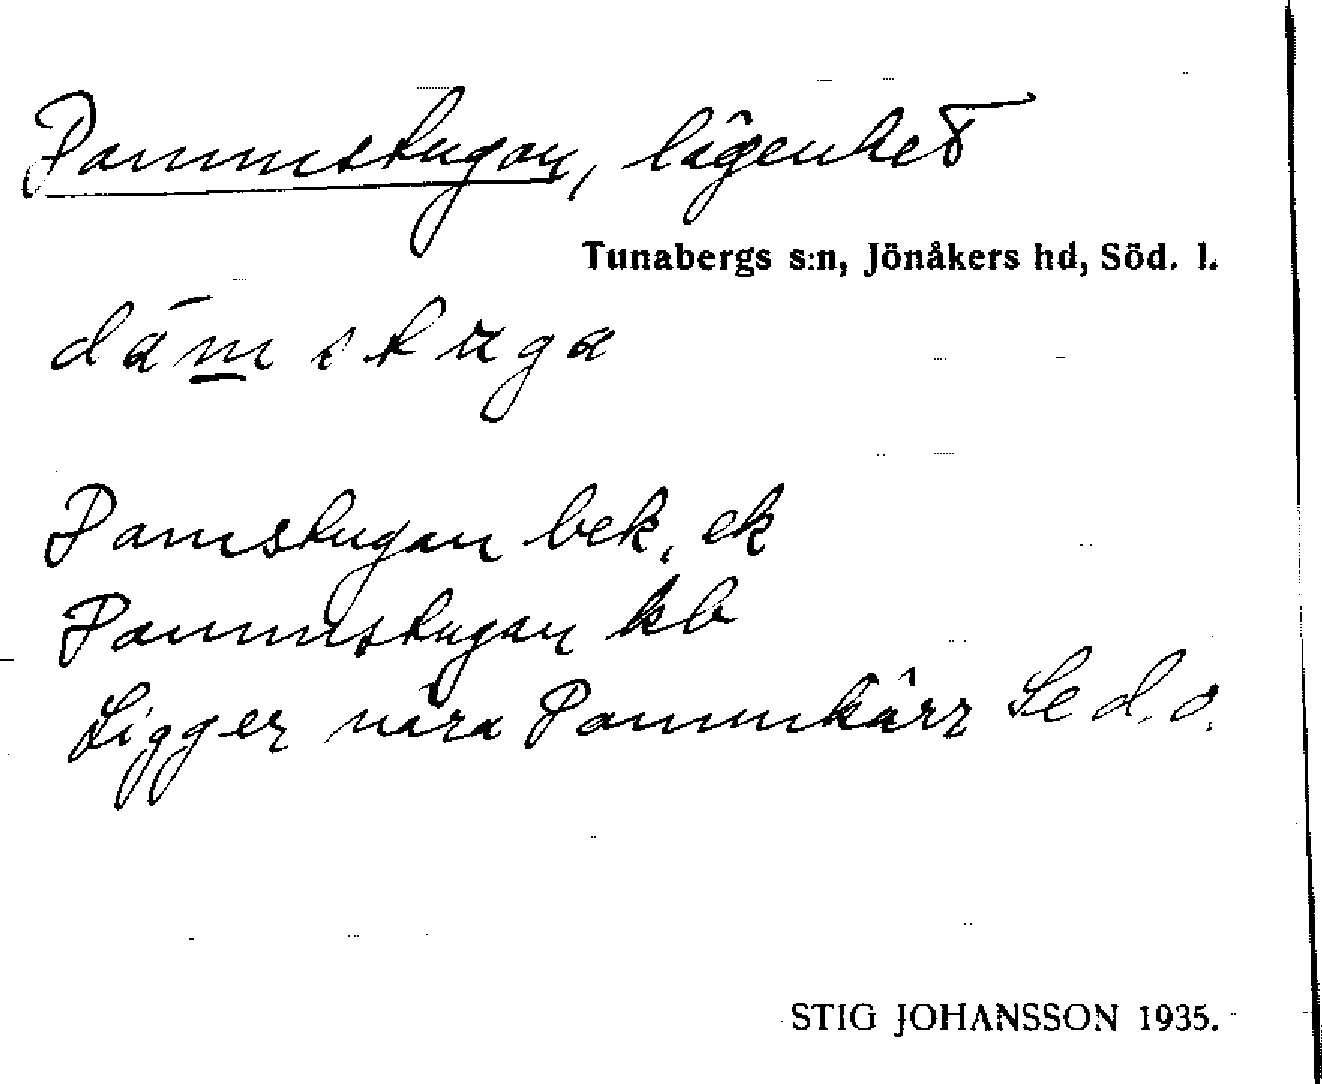 Dammstugan, lägenhet
Tunabergs s:n, Jönåkers hd, Söd. l.
dämstuga
Damstugan bek, ek
Dammstugan kb
Ligger nära Dammkärr Se d.o.
STIG JOHANSSON 1935.